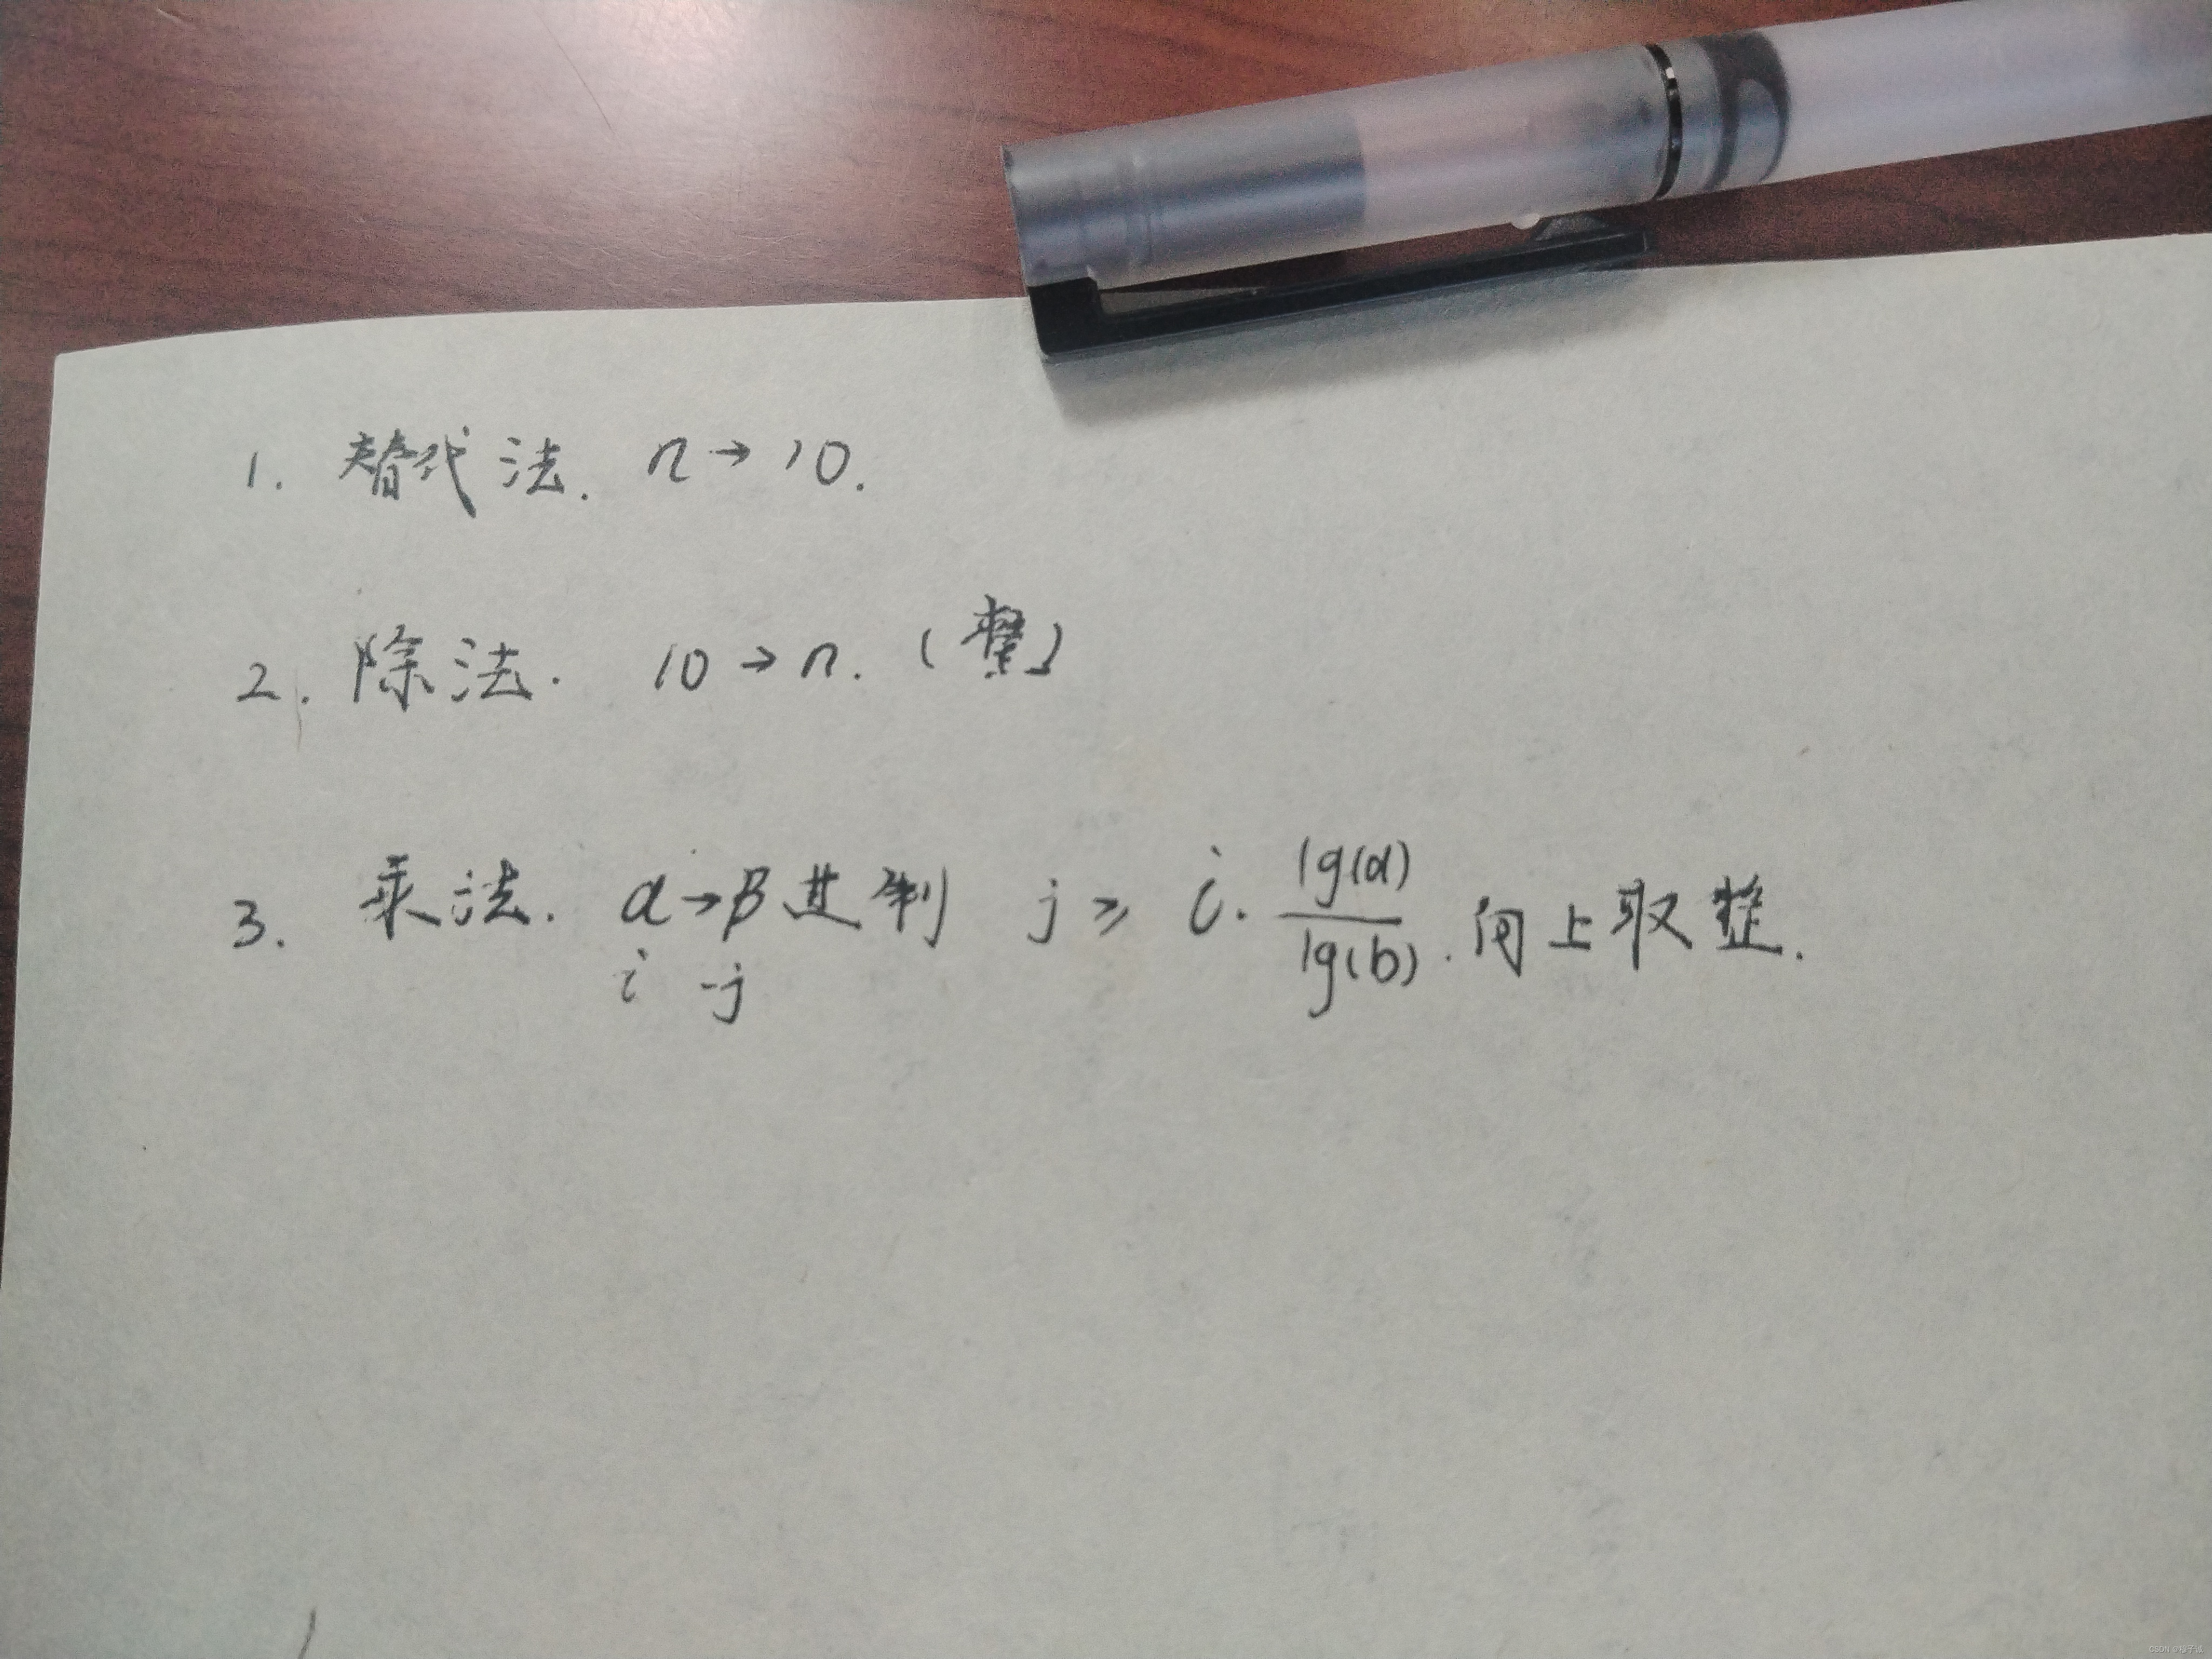 1. 替代法. n→10.
2. 除法. 10→n. (整)
3. 乘法. α→β进制 j≥ i· lg(α)/lg(b) . 向上取整.
i -j